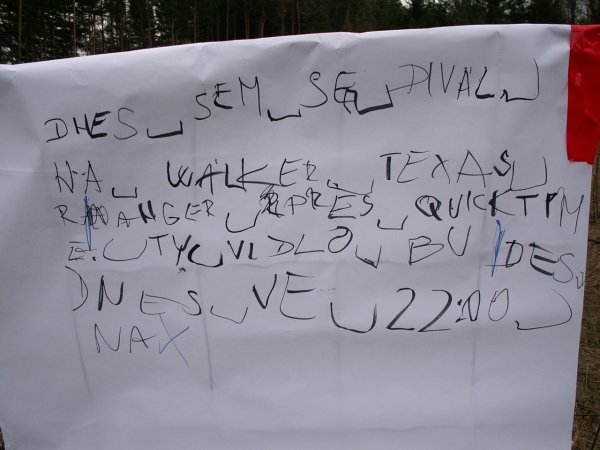 DNES␣SEM␣SE␣DIVAL␣
NA␣WALKER␣TEXAS␣
RANGER␣PRES␣QUICKTIM
E.␣TY␣VIDLO␣BU DES␣
DNES␣VE␣22:00␣
NAX